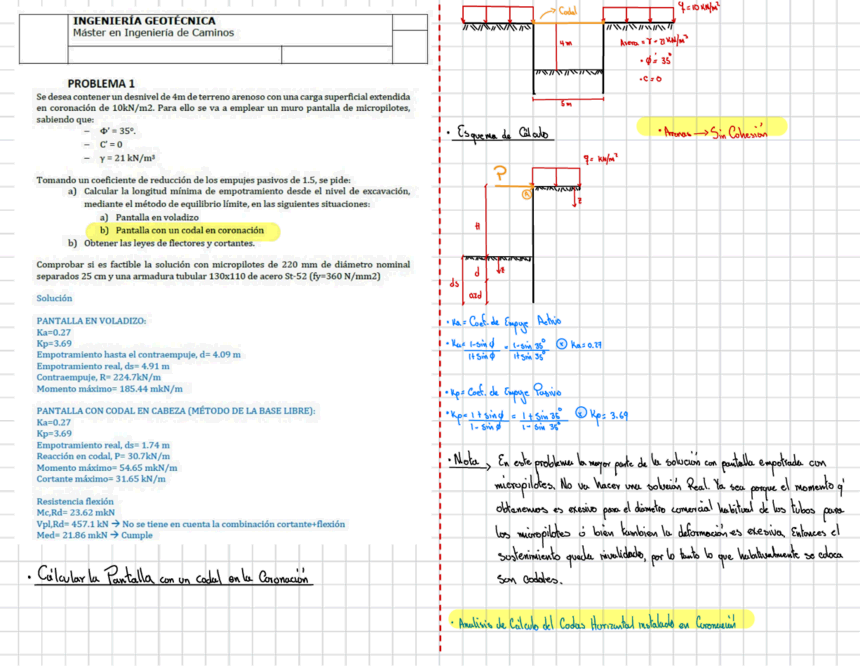 INGENIERÍA GEOTÉCNICA
Máster en Ingeniería de Caminos
PROBLEMA 1
Se desea contener un desnivel de 4m de terreno arenoso con una carga superficial extendida
en coronación de 10kN/m2. Para ello se va a emplear un muro pantalla de micropilotes,
sabiendo que:
− Φ' = 35º.
− C' = 0
− γ = 21 kN/m³
Tomando un coeficiente de reducción de los empujes pasivos de 1.5, se pide:
a) Calcular la longitud mínima de empotramiento desde el nivel de excavación,
mediante el método de equilibrio límite, en las siguientes situaciones:
a) Pantalla en voladizo
b) Pantalla con un codal en coronación
b) Obtener las leyes de flectores y cortantes.
Comprobar si es factible la solución con micropilotes de 220 mm de diámetro nominal
separados 25 cm y una armadura tubular 130x110 de acero St-52 (fy=360 N/mm2)
Solución
PANTALLA EN VOLADIZO:
Ka=0.27
Kp=3.69
Empotramiento hasta el contraempuje, d= 4.09 m
Empotramiento real, ds= 4.91 m
Contraempuje, R= 224.7kN/m
Momento máximo= 185.44 mkN/m
PANTALLA CON CODAL EN CABEZA (MÉTODO DE LA BASE LIBRE):
Ka=0.27
Kp=3.69
Empotramiento real, ds= 1.74 m
Reacción en codal, P= 30.7kN/m
Momento máximo= 54.65 mkN/m
Cortante máximo= 31.65 kN/m
Resistencia flexión
Mc,Rd= 23.62 mkN
Vpl,Rd= 457.1 kN → No se tiene en cuenta la combinación cortante+flexión
Med= 21.86 mkN → Cumple
• Cálcular la Pantalla con un codal en la Coronación
Codal
q=10 kN/m²
4m
Arena • γ = 21 kN/m³
• ϕ' = 35°
• C = 0
5m
• Esquema de Cálculo
• Arenas → Sin Cohesión
q= kN/m²
P
z
H
ds
d
z
0.2d
• Ka = Coef. de Empuje Activo
• Ka = 1-sin ϕ / 1+sin ϕ = 1-sin 35° / 1+sin 35° Ka = 0.27
• Kp = Coef. de Empuje Pasivo
• Kp = 1+sin ϕ / 1-sin ϕ = 1+sin 35° / 1-sin 35° Kp = 3.69
• Nota → En este problema la mayor parte de la solución con pantalla empotrada con
micropilotes. No va hacer una solución Real. Ya sea porque el momento q'
obtenemos es exesivo para el diámetro comercial habitual de los tubos para
los micropilotes ó bien tambien la deformación es exesiva, Entonces el
sostenimiento queda invalidado, por lo tanto lo que habitualmente se coloca
son codales.
• Analisis de Cálculo del Codas Horizontal instalado en Coronación